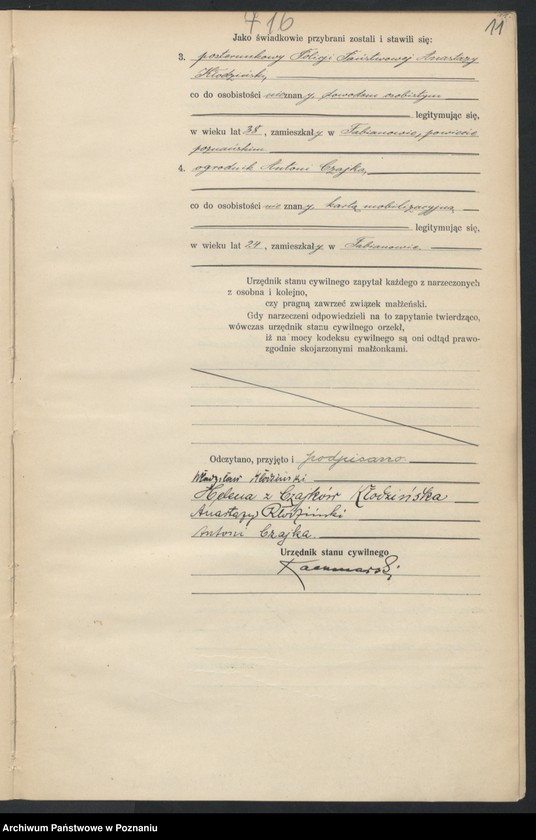 416
11
Jako świadkowie przybrani zostali i stawili się:
3. posterunkowy Policji Państwowej Anastazy
Kłodziński,
co do osobistości nieznany, dowodem osobistym
legitymując się,
w wieku lat 38, zamieszkały w Fabianowie, powiecie
poznańskim
4. ogrodnik Antoni Czajka,
co do osobistości nie znany, kartą mobilizacyjną
legitymując się,
w wieku lat 24, zamieszkały w Fabianowie.
Urzędnik stanu cywilnego zapytał każdego z narzeczonych
z osobna i kolejno,
czy pragną zawrzeć związek małżeński.
Gdy narzeczeni odpowiedzieli na to zapytanie twierdząco,
wówczas urzędnik stanu cywilnego orzekł,
iż na mocy kodeksu cywilnego są oni odtąd prawo-
zgodnie skojarzonymi małżonkami.
Odczytano, przyjęto i podpisano
Władysław Kłodziński
Helena z Czajków Kłodzińska
Anastazy Kłodziński
Antoni Czajka.
Urzędnik stanu cywilnego
Kaczmarski
Archiwum Państwowe w Poznaniu